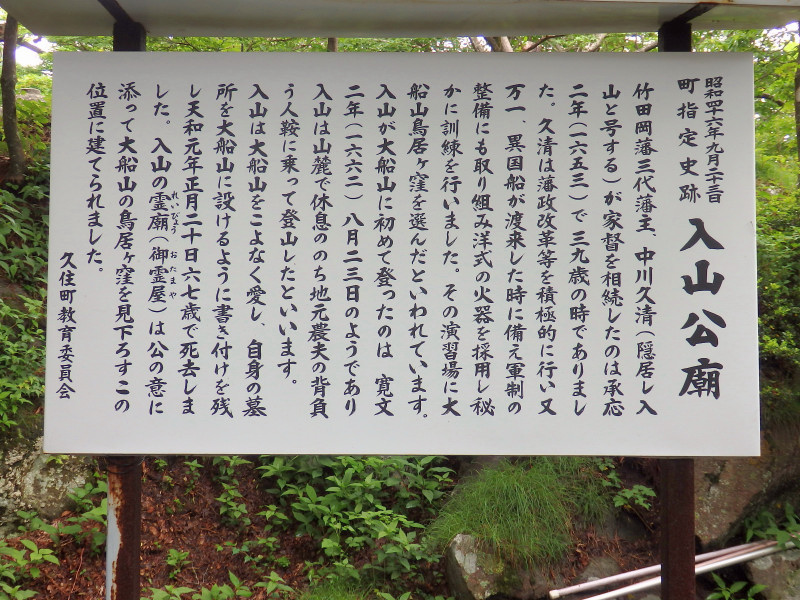 昭和四十六年九月二十三日
町指定史跡
入山公廟
竹田岡藩三代藩主、中川久清(隠居し入
山と号する)が家督を相続したのは承応
二年(一六五三)で三九歳の時でありまし
た。久清は藩政改革等を積極的に行い又
万一、異国船が渡来した時に備え軍制の
整備にも取り組み洋式の火器を採用し秘
かに訓練を行いました。その演習場に大
船山鳥居ヶ窪を選んだといわれています。
入山が大船山に初めて登ったのは 寛文
二年(一六六二)八月二三日のようであり
入山は山麓で休息ののち地元農夫の背負
う人鞍に乗って登山したといいます。
入山は大船山をこよなく愛し、自身の墓
所を大船山に設けるように書き付けを残
し天和元年正月二十日六七歳で死去しま
した。入山の霊廟(御霊屋)は公の意に
れいびょう おたまや
添って大船山の鳥居ヶ窪を見下ろすこの
位置に建てられました。
久住町教育委員会